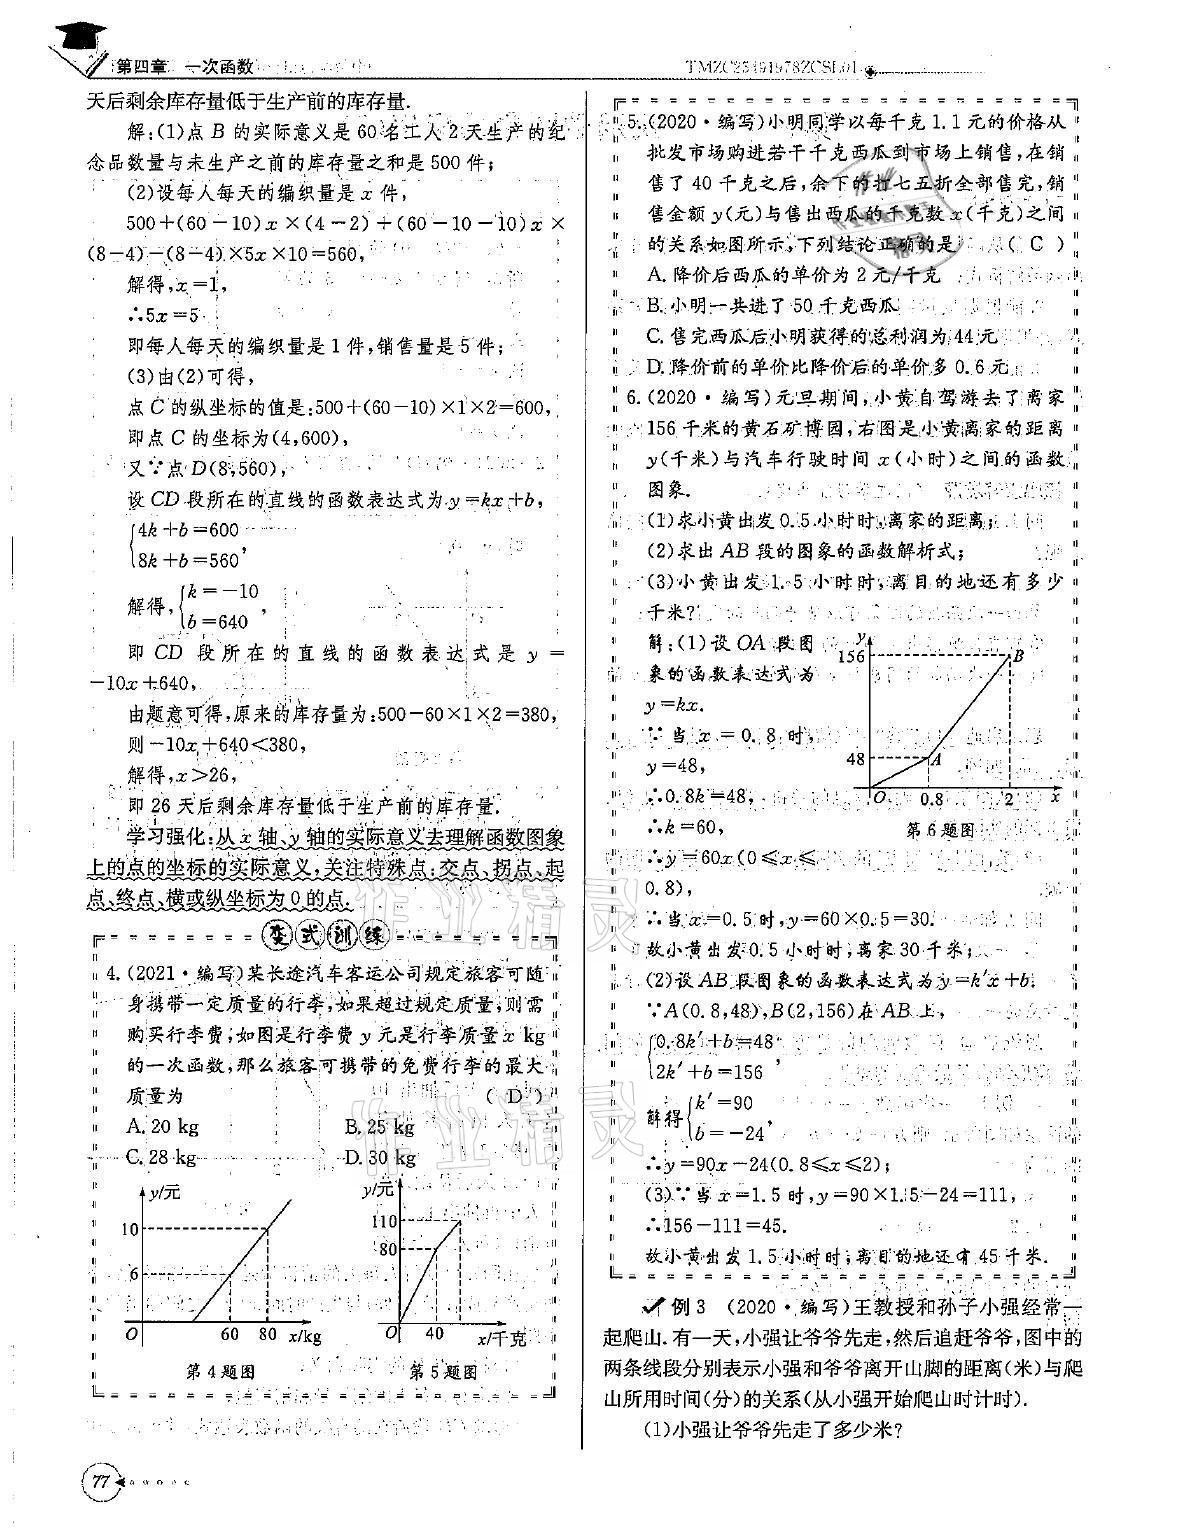 第四章 一次函数
TMZC23491978ZCSL01
天后剩余库存量低于生产前的库存量.
解:(1)点 B 的实际意义是 60 名工人 2 天生产的纪
念品数量与未生产之前的库存量之和是 500 件;
(2)设每人每天的编织量是 x 件,
500+(60-10)x×(4-2)+(60-10-10)x×
(8-4)-(8-4)×5x×10=560,
解得,x=1,
∴5x=5
即每人每天的编织量是 1 件,销售量是 5 件;
(3)由(2)可得,
点 C 的纵坐标的值是:500+(60-10)×1×2=600,
即点 C 的坐标为(4,600),
又∵点 D(8,560),
设 CD 段所在的直线的函数表达式为 y=kx+b,
{4k+b=600
8k+b=560,
解得,{k=-10
b=640,
即 CD 段所在的直线的函数表达式是 y=
-10x+640,
由题意可得,原来的库存量为:500-60×1×2=380,
则-10x+640<380,
解得,x>26,
即 26 天后剩余库存量低于生产前的库存量.
学习强化:从 x 轴、y 轴的实际意义去理解函数图象
上的点的坐标的实际意义,关注特殊点:交点、拐点、起
点、终点、横或纵坐标为 0 的点.
变式训练
4.(2021·编写)某长途汽车客运公司规定旅客可随
身携带一定质量的行李,如果超过规定质量,则需
购买行李费,如图是行李费 y 元是行李质量 x kg
的一次函数,那么旅客可携带的免费行李的最大
质量为 ( D )
A.20 kg B.25 kg
C.28 kg D.30 kg
y/元
10
6
O 60 80 x/kg
第 4 题图
y/元
110
80
O 40 x/千克
第 5 题图
5.(2020·编写)小明同学以每千克 1.1 元的价格从
批发市场购进若干千克西瓜到市场上销售,在销
售了 40 千克之后,余下的打七五折全部售完,销
售金额 y(元)与售出西瓜的千克数 x(千克)之间
的关系如图所示,下列结论正确的是 ( C )
A.降价后西瓜的单价为 2 元/千克
B.小明一共进了 50 千克西瓜
C.售完西瓜后小明获得的总利润为 44 元
D.降价前的单价比降价后的单价多 0.6 元
6.(2020·编写)元旦期间,小黄自驾游去了离家
156 千米的黄石矿博园,右图是小黄离家的距离
y(千米)与汽车行驶时间 x(小时)之间的函数
图象.
(1)求小黄出发 0.5 小时时,离家的距离;
(2)求出 AB 段的图象的函数解析式;
(3)小黄出发 1.5 小时时,离目的地还有多少
千米?
解:(1)设 OA 段图
象的函数表达式为
y=kx.
∵当 x=0.8 时,
y=48,
∴0.8k=48,
∴k=60,
∴y=60x(0≤x≤
0.8),
y
156
B
48
A
O 0.8 2 x
第 6 题图
∴当 x=0.5 时,y=60×0.5=30.
故小黄出发 0.5 小时时,离家 30 千米;
(2)设 AB 段图象的函数表达式为 y=k′x+b,
∵A(0.8,48),B(2,156)在 AB 上,
{0.8k′+b=48
2k′+b=156,
解得{k′=90
b=-24,
∴y=90x-24(0.8≤x≤2);
(3)∵当 x=1.5 时,y=90×1.5-24=111,
∴156-111=45.
故小黄出发 1.5 小时时,离目的地还有 45 千米.
例 3 (2020·编写)王教授和孙子小强经常一
起爬山.有一天,小强让爷爷先走,然后追赶爷爷,图中的
两条线段分别表示小强和爷爷离开山脚的距离(米)与爬
山所用时间(分)的关系(从小强开始爬山时计时).
(1)小强让爷爷先走了多少米?
77
作业精灵
作业精灵